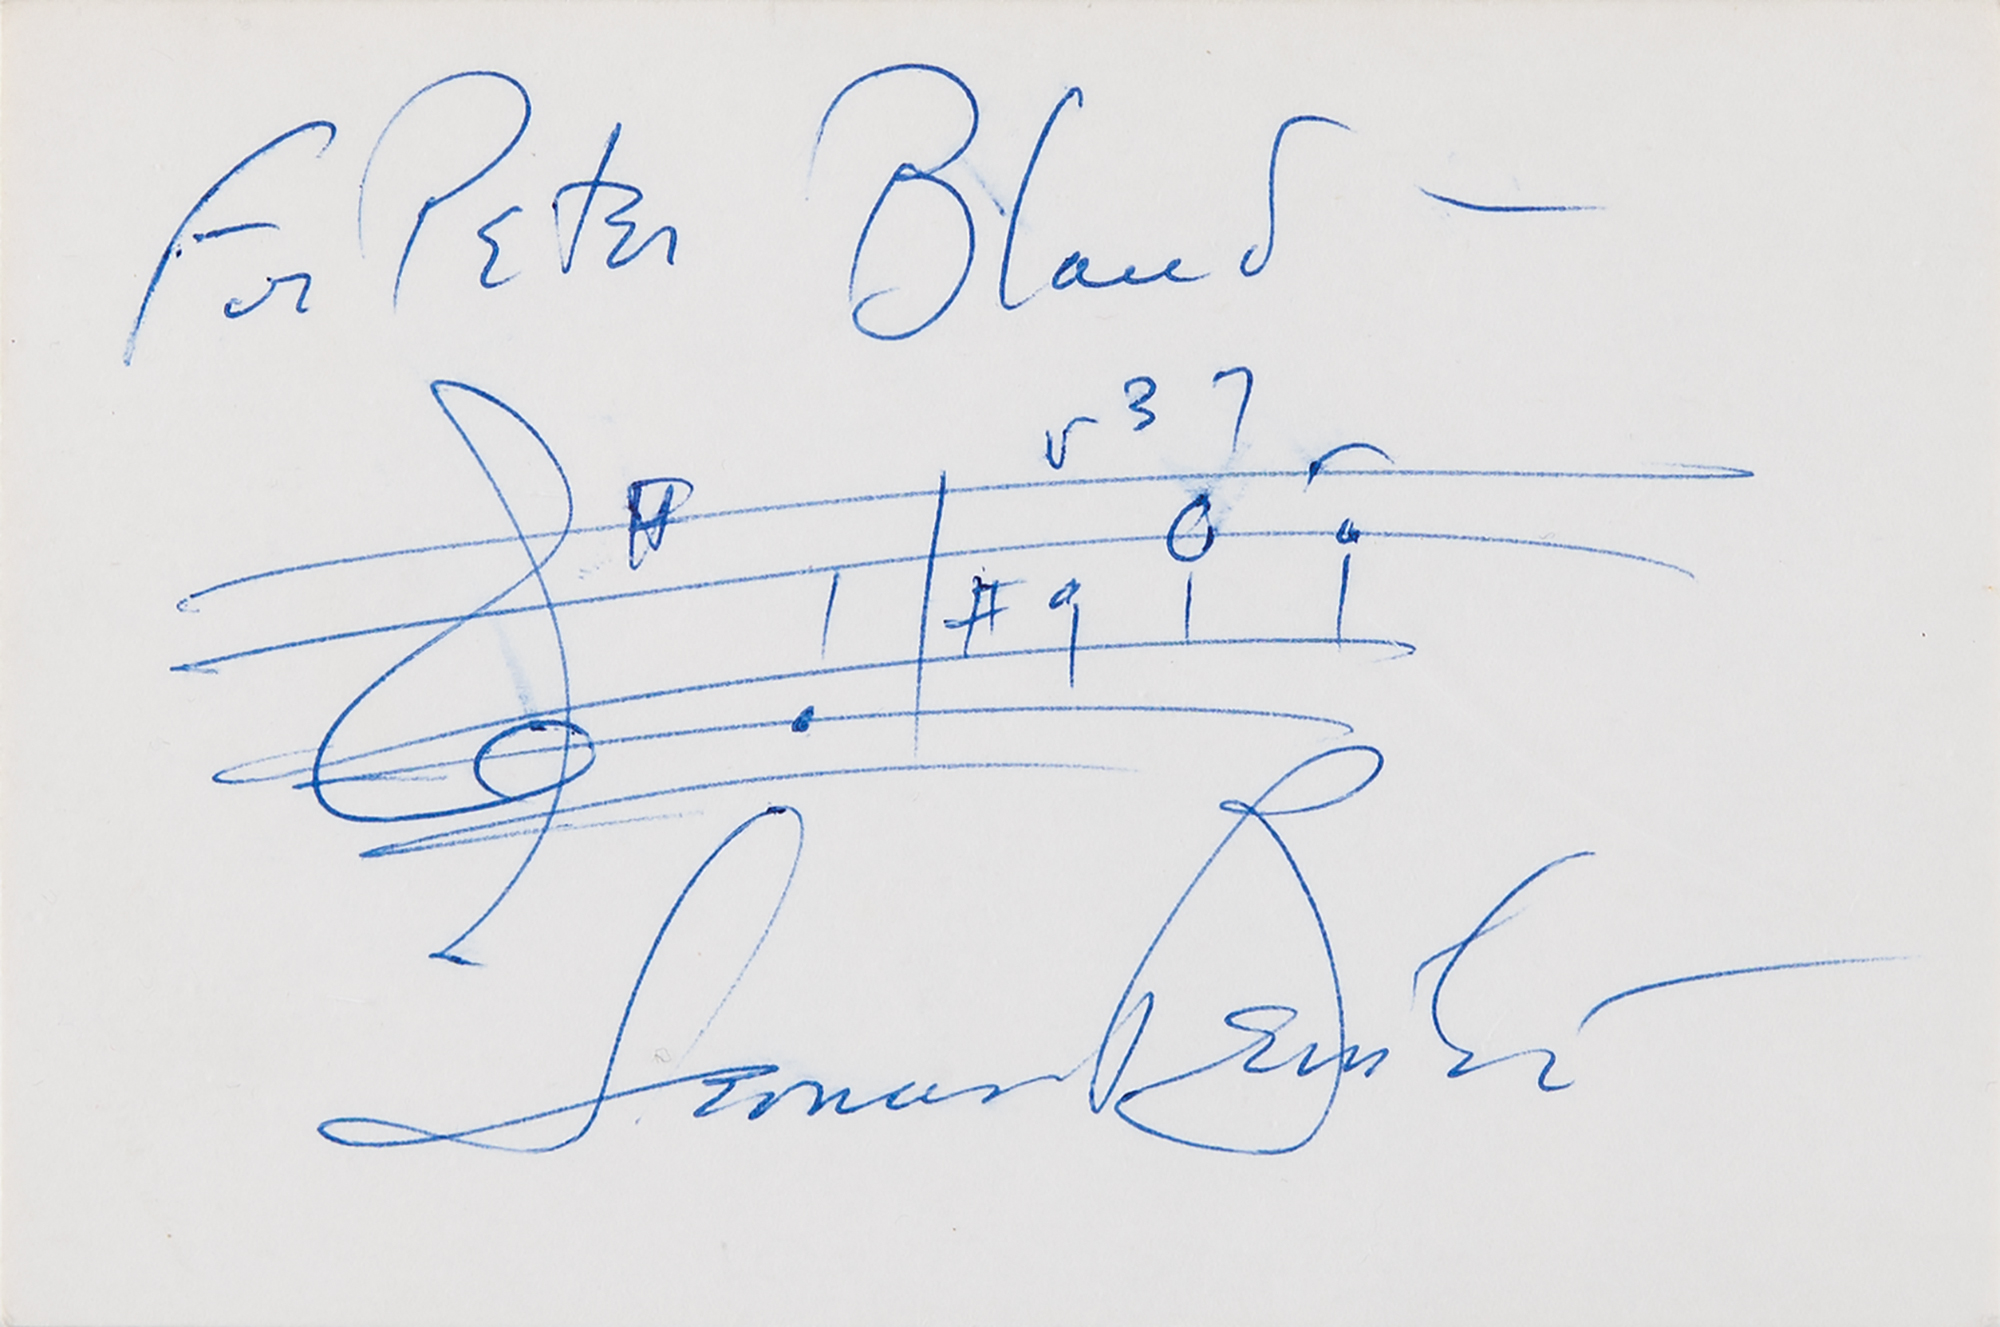 For Peter Bland —
3
Leonard Bernstein